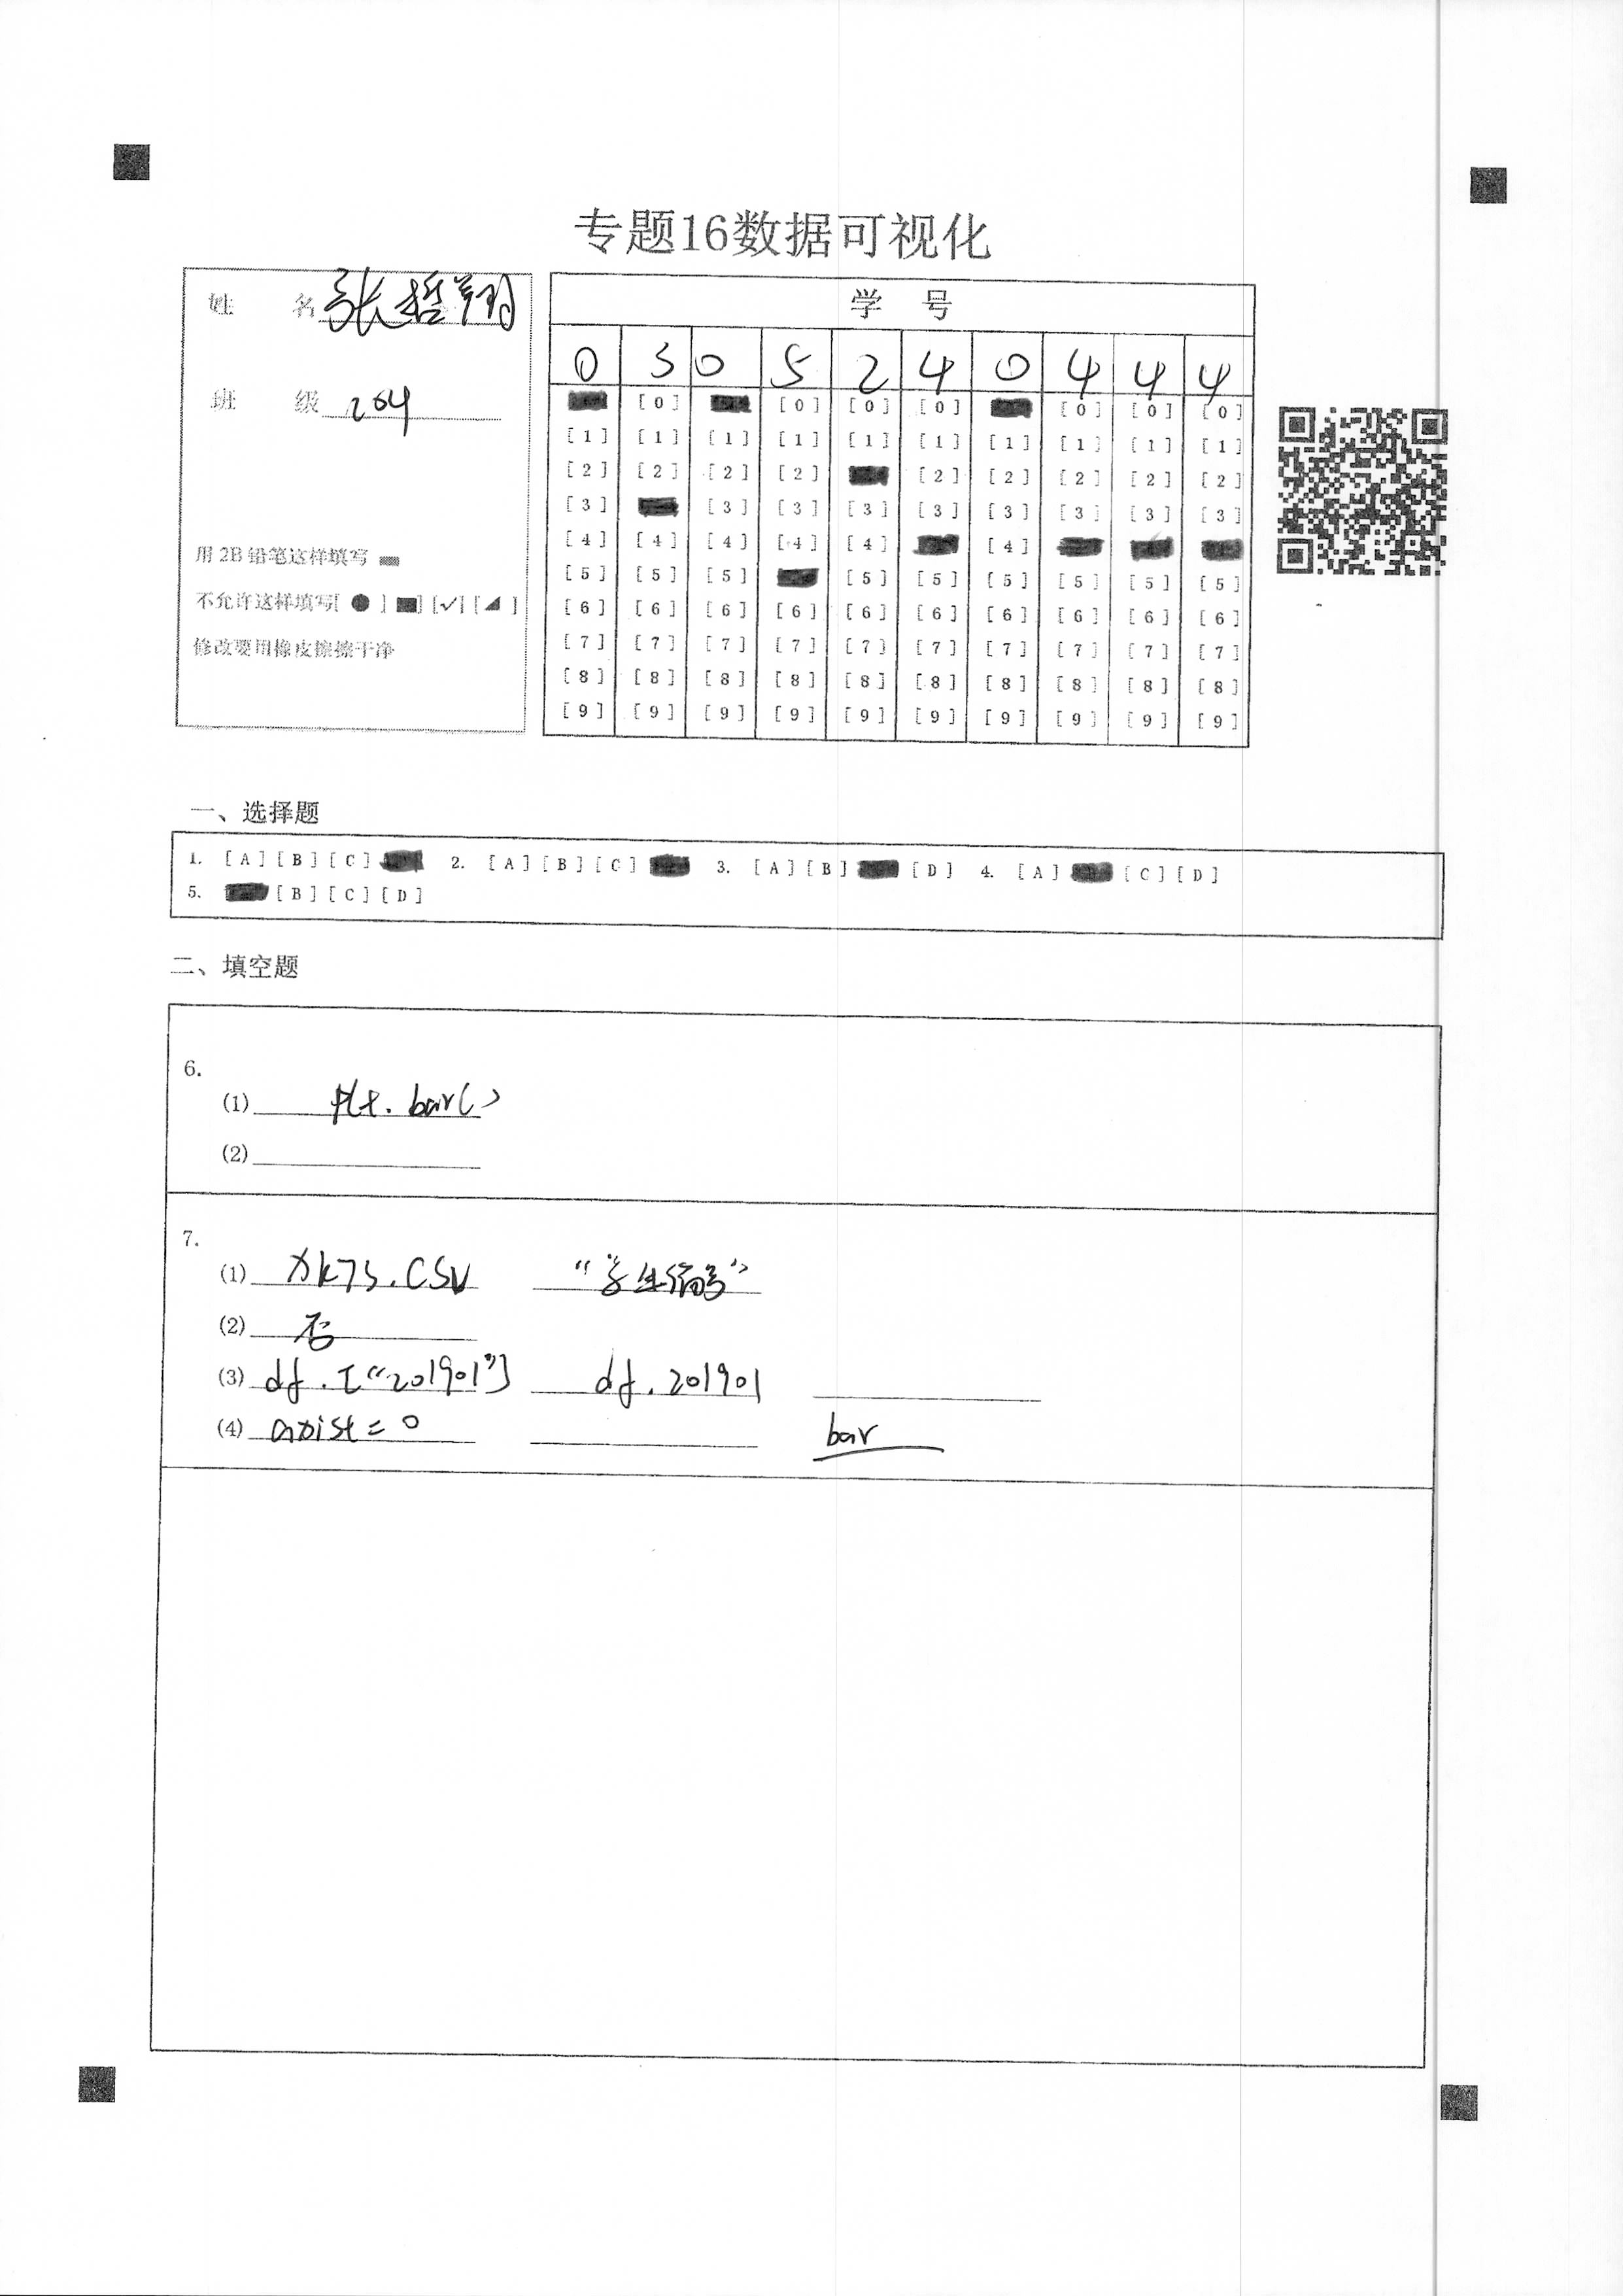 专题16数据可视化
姓 名 张哲翔
班 级 204
用 2B 铅笔这样填写
不允许这样填写[ ● ] [■] [✓] [◢ ]
修改要用橡皮擦擦干净
学 号
0 3 0 5 2 4 0 4 4 4
[0] [0] [0] [0] [0] [0] [0]
[1] [1] [1] [1] [1] [1] [1] [1] [1] [1]
[2] [2] [2] [2] [2] [2] [2] [2] [2]
[3] [3] [3] [3] [3] [3] [3] [3] [3]
[4] [4] [4] [4] [4] [4]
[5] [5] [5] [5] [5] [5] [5] [5] [5]
[6] [6] [6] [6] [6] [6] [6] [6] [6] [6]
[7] [7] [7] [7] [7] [7] [7] [7] [7] [7]
[8] [8] [8] [8] [8] [8] [8] [8] [8] [8]
[9] [9] [9] [9] [9] [9] [9] [9] [9] [9]
一、选择题
1. [A] [B] [C] 2. [A] [B] [C] 3. [A] [B] [D] 4. [A] [C] [D]
5. [B] [C] [D]
二、填空题
6.
(1) plt. bar()
(2)
7.
(1) xk73.csv “学生编号”
(2) 否
(3) df.[“201901”] df.201901
(4) axist=0 bar